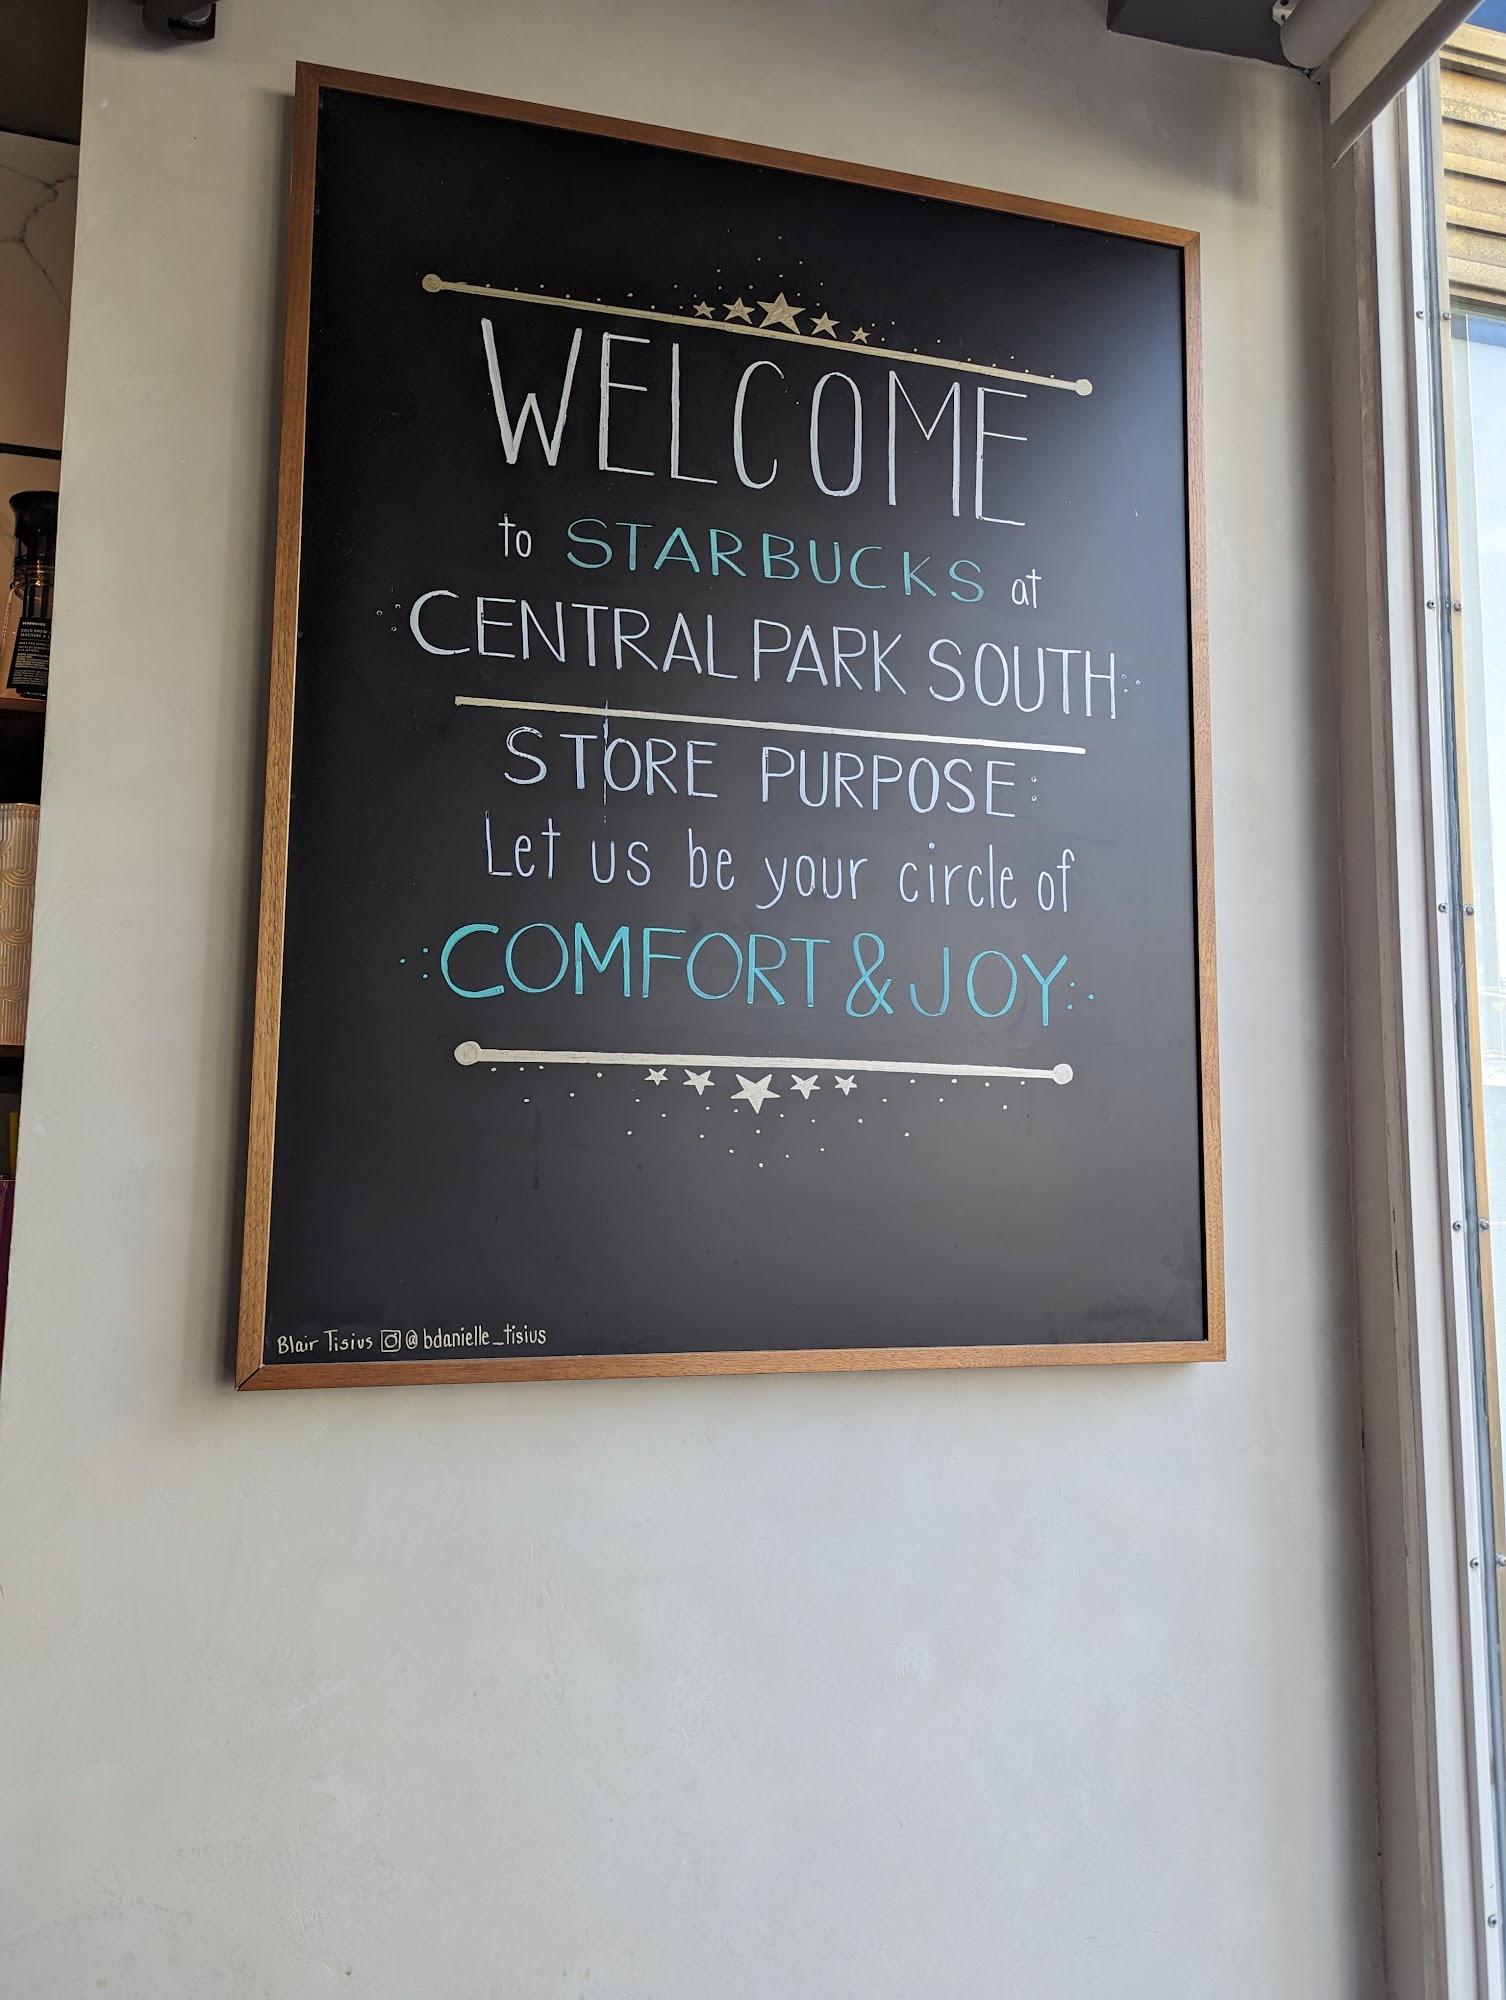 WELCOME
to STARBUCKS at
CENTRAL PARK SOUTH
STORE PURPOSE:
Let us be your circle of
COMFORT & JOY
Blair Tisius @bdanielle_tisius
STARBUCKS
COLD BREW